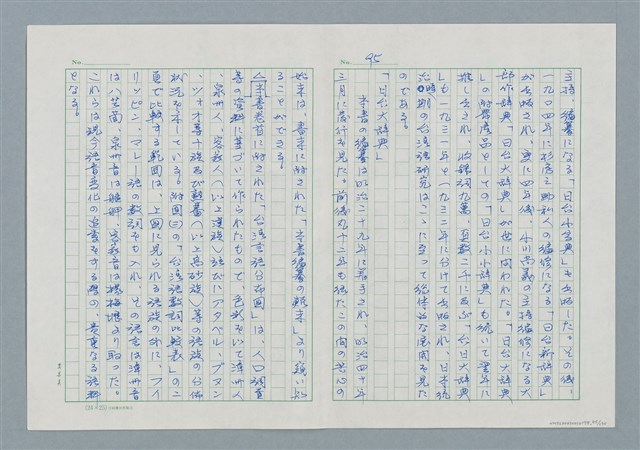 No. 95
主持、編纂になる「日台小字典」を出版した。その後、
一九〇四年に杉房之助私人の編修になる「日台新辞典」
が出版され、更に四年後、小川尚義の主持編修になる大
部作辞典「日台大辞典」が世に問われた。「日台大辞典
」の附帯産品としての「日台小小辞典」も続いて翌年に
推し出され、収録詞九萬、頁数二千に及ぶ「台日大辞典
」も一九三一年と一九三二年に分けて出版され、日本統
治時期の台湾語研究はここに至って総体的な完周を見た
のである。
「日台大辞典」
本書の編纂は明治二十九年に着手され、明治四十年
三月に発行を見た。前後九十二年も経たこの間の苦心の
No.
始末は、書末に附された「本書編纂の顛末」より窺い知
ることができる。
本書巻首に附された「台湾言語分布図」は、人口調査
等の資料に基づいて作られたもので、色彩を以て漳州人
、泉州人、客家人(以上漢族)並びにアタヤル、ブヌン
、ツォオ等十族及び熟蕃(以上高砂族)等の語族の分佈
状況を示している。附図(三)の「台湾語数詞比較表」の二
頁で比較する範囲は、上図に見られる語族の外に、フィ
リッピン、マレー語の数詞をも入れ、その語音は漳州音
は八芝蘭、泉州音は艋舺、客家音は楊梅壢より取った。
これらは現今語音変化の追索をする際の、貴重なる語料
となる。
(24×25)